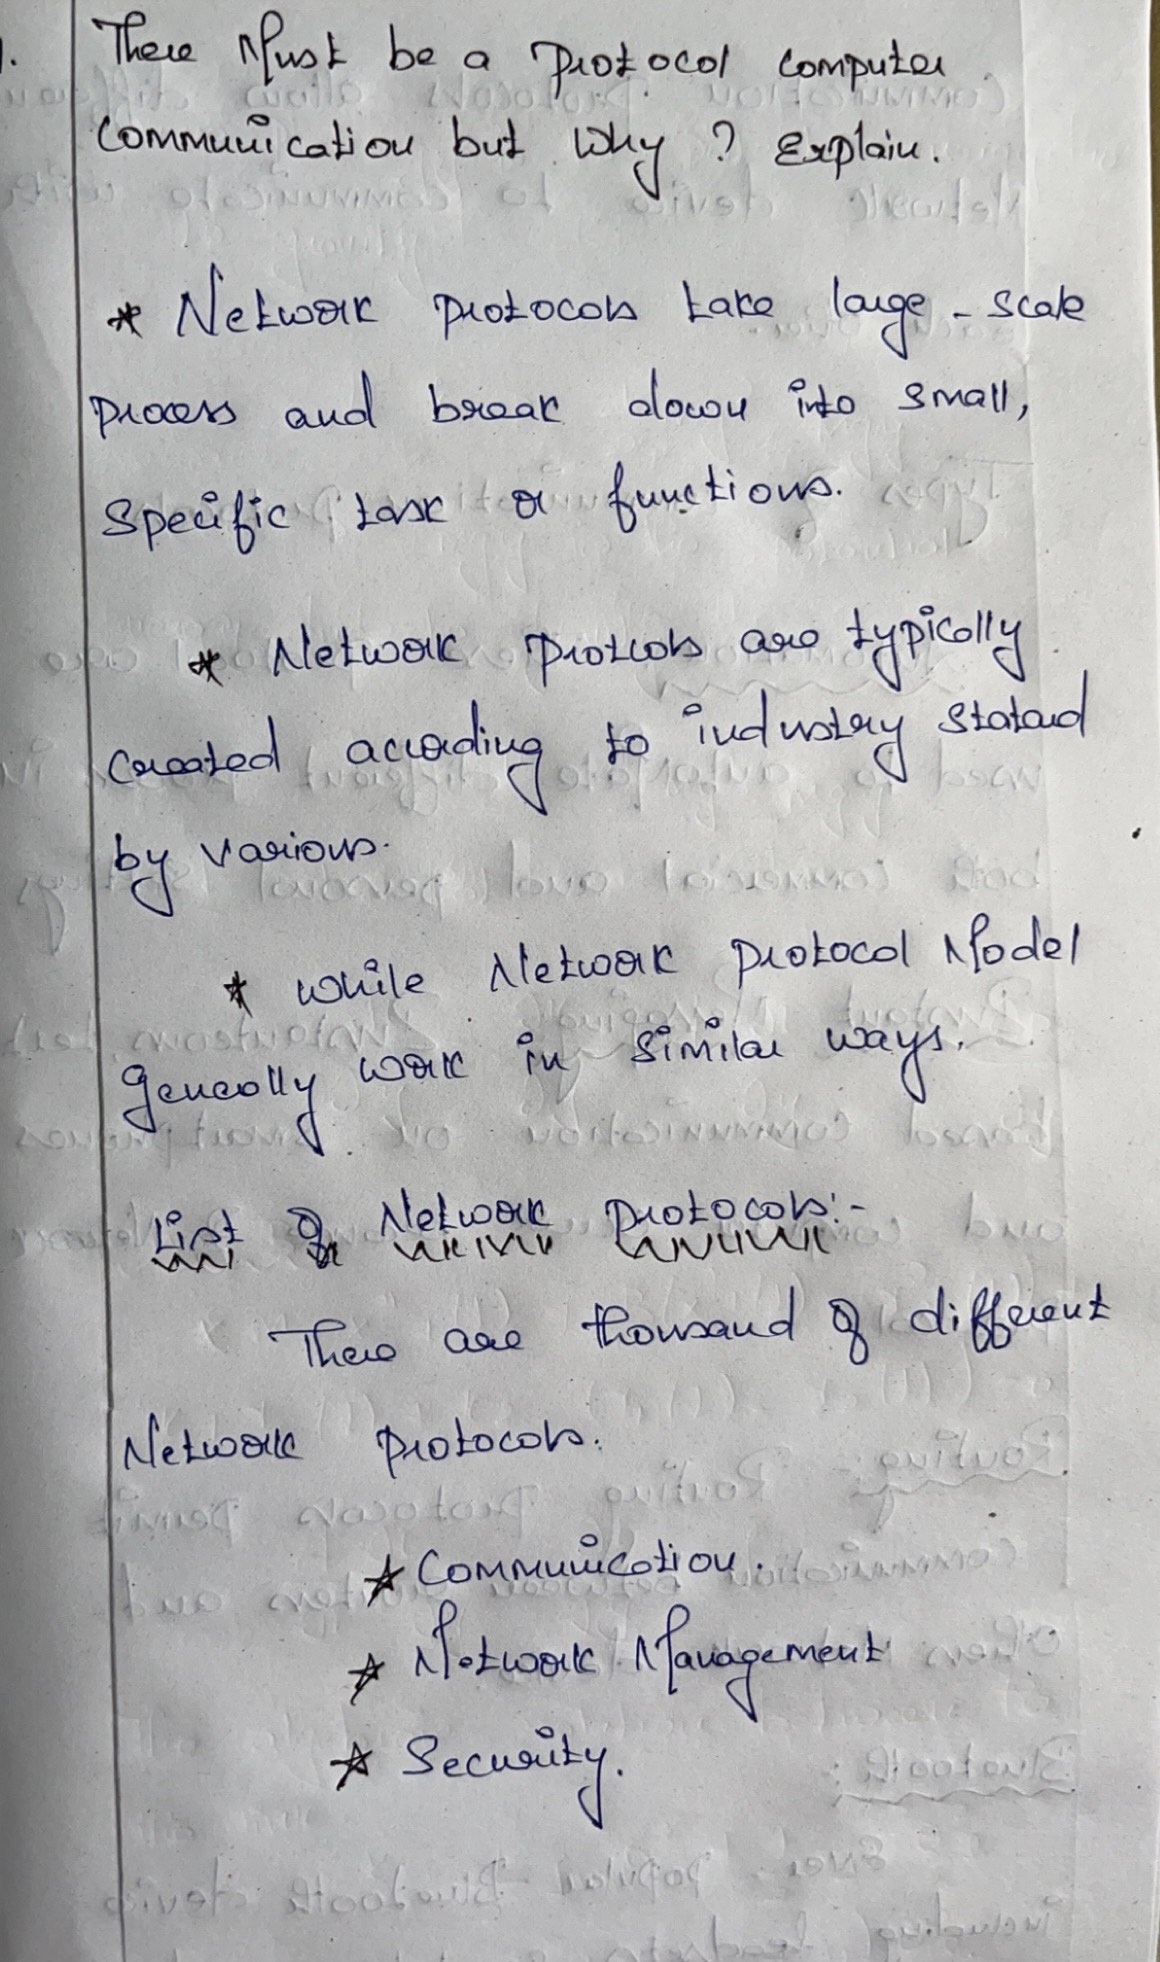 1. There Must be a Protocol computer
Communication but Why ? Explain.
* Network protocols take large - scale
process and break down into small,
Specific task or functions.
* Network protcols are typically
created according to industry statard
by various.
* while Network protocol Model
generally work in similar ways.
List of Network protocols:-
There are thousand of different
Network protocols.
* Communication.
* Network Management
* Security.